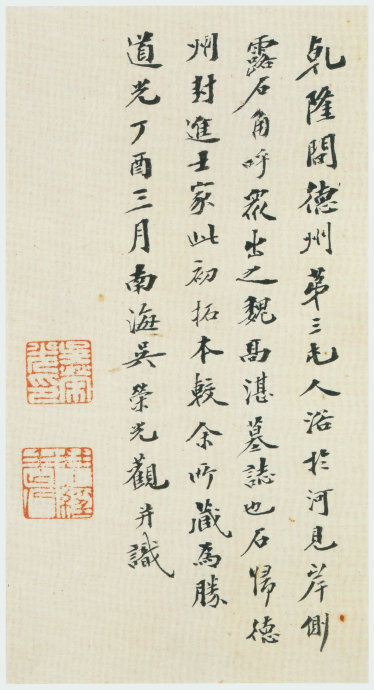 乹隆間德州第三屯人浴於河見岸側
露石角呼眾出之魏高湛墓誌也石歸德
州封進士家此初拓本較余所藏為勝
道光丁酉三月南海吳榮光觀并識